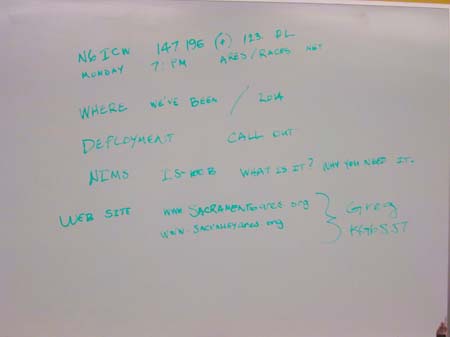 N6ICW 147 195 (+) 123. PL
MONDAY 7: PM ARES/RACES NET
WHERE WE'VE BEEN / 2014
DEPLOYMENT CALL OUT
NIMS IS-100B WHAT IS IT? WHY YOU NEED IT.
WEB SITE www.SACRAMENTOares.org
www.SACVALLEYares.org
Greg
KG6SJT